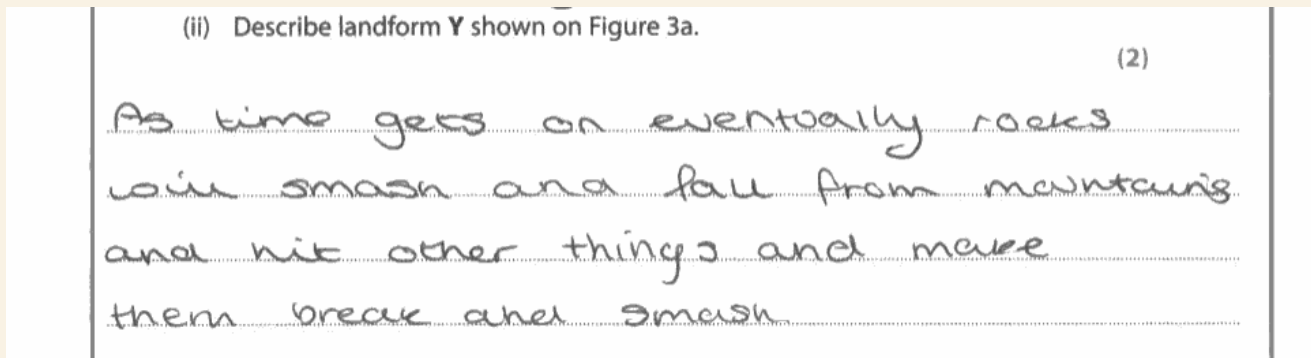 (ii) Describe landform Y shown on Figure 3a.
(2)
As time gets on eventually rocks
will smash and fall from mountains
and hit other things and make
them break and smash